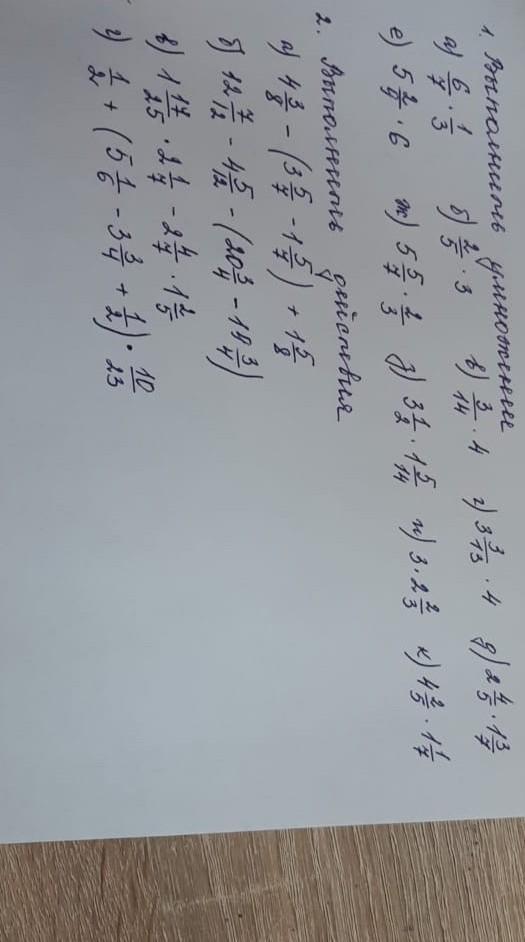 1. Выполнить умножение
а) 6/7 · 1/3 б) 2/5 · 3 в) 3/14 · 4 г) 3 3/13 · 4 д) 2 4/5 · 1 3/7
е) 5 2/9 · 6 ж) 5 5/7 · 2/3 з) 3 1/2 · 1 5/14 и) 3 · 2 2/3 к) 4 2/5 · 1 1/7
2. Выполнить действия
а) 4 3/8 - (3 5/7 - 1 5/7) + 1 5/8
б) 12 7/12 - 4 5/12 - (20 3/4 - 19 3/4)
в) 1 17/25 · 2 1/7 - 2 4/7 · 1 2/5
г) 1/2 + (5 1/6 - 3 3/4 + 1/2) · 10/23